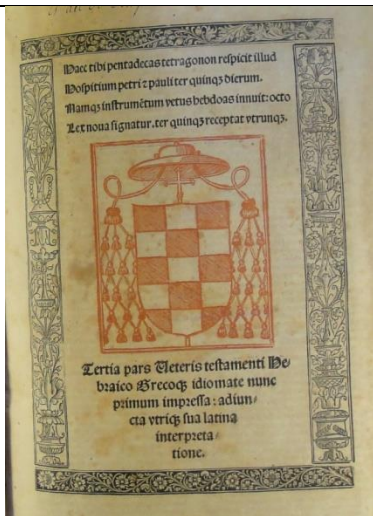 Haec tibi pentadecas tetragonon respicit illud
Hospitium petri ⁊ pauli ter quinqꝫ dierum.
Namqꝫ instrumētum vetus hebdoas innuit: octo
Lex noua signatur. ter quinqꝫ receptat vtrunqꝫ.
Tertia pars Ueteris testamenti He/
braico Grecoqꝫ idiomate nunc
primum impressa: adiun/
cta vtriqꝫ sua latina
interpreta/
tione.